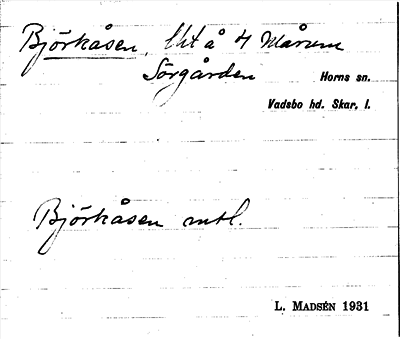 Björkåsen, lht å 4 Mårum
Sörgården Horns sn.
Vadsbo hd. Skar. l.
Björkåsen mtl.
L. MADSÉN 1931